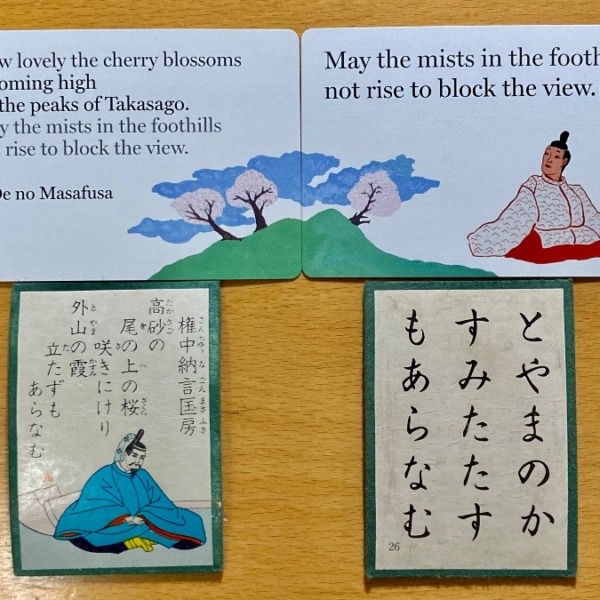 w lovely the cherry blossoms
oming high
the peaks of Takasago.
y the mists in the foothills
rise to block the view.
Oe no Masafusa
May the mists in the footh
not rise to block the view.
権中納言匡房
高砂の
尾の上の桜
咲きにけり
外山の霞
立たずも
あらなむ
とやまのか
すみたたす
もあらなむ
26